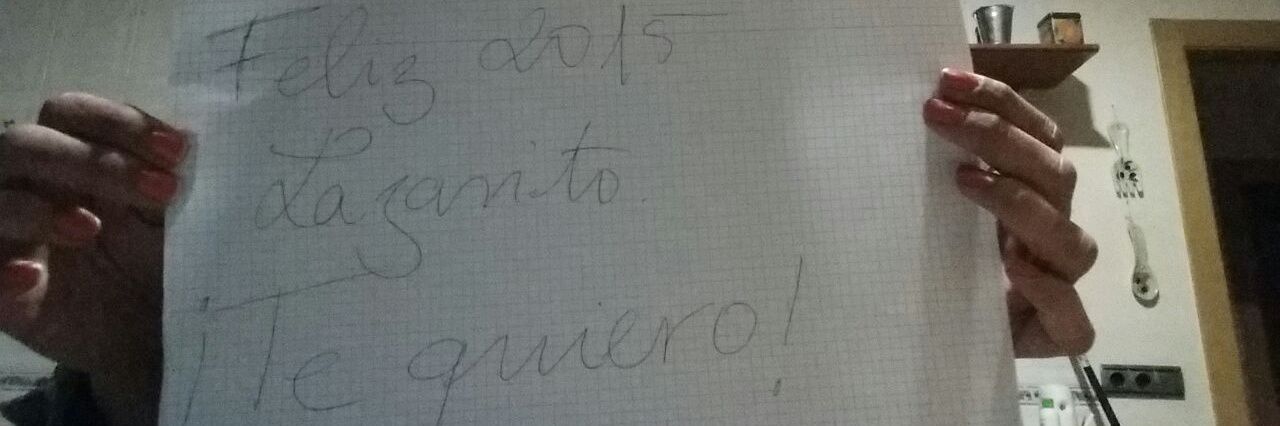 Feliz 2015
Lazarito.
¡Te quiero!